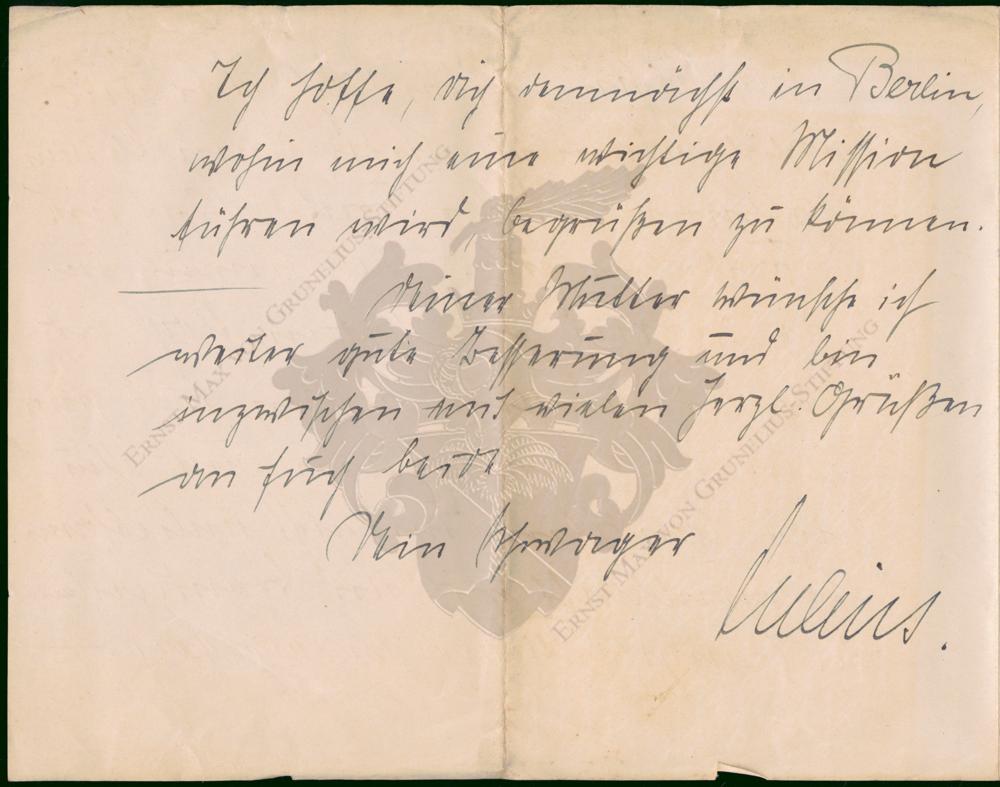 Ich hoffe, dich demnächst in Berlin,
wohin mich eine wichtige Mission
führen wird, begrüßen zu können.
Deiner Mutter wünsche ich
weiter gute Besserung und bin
inzwischen mit vielen herzl. Grüßen
an Euch beide
Dein Schwager
Julius.
ERNST MAX VON GRUNELIUS-STIFTUNG
ERNST MAX VON GRUNELIUS-STIFTUNG